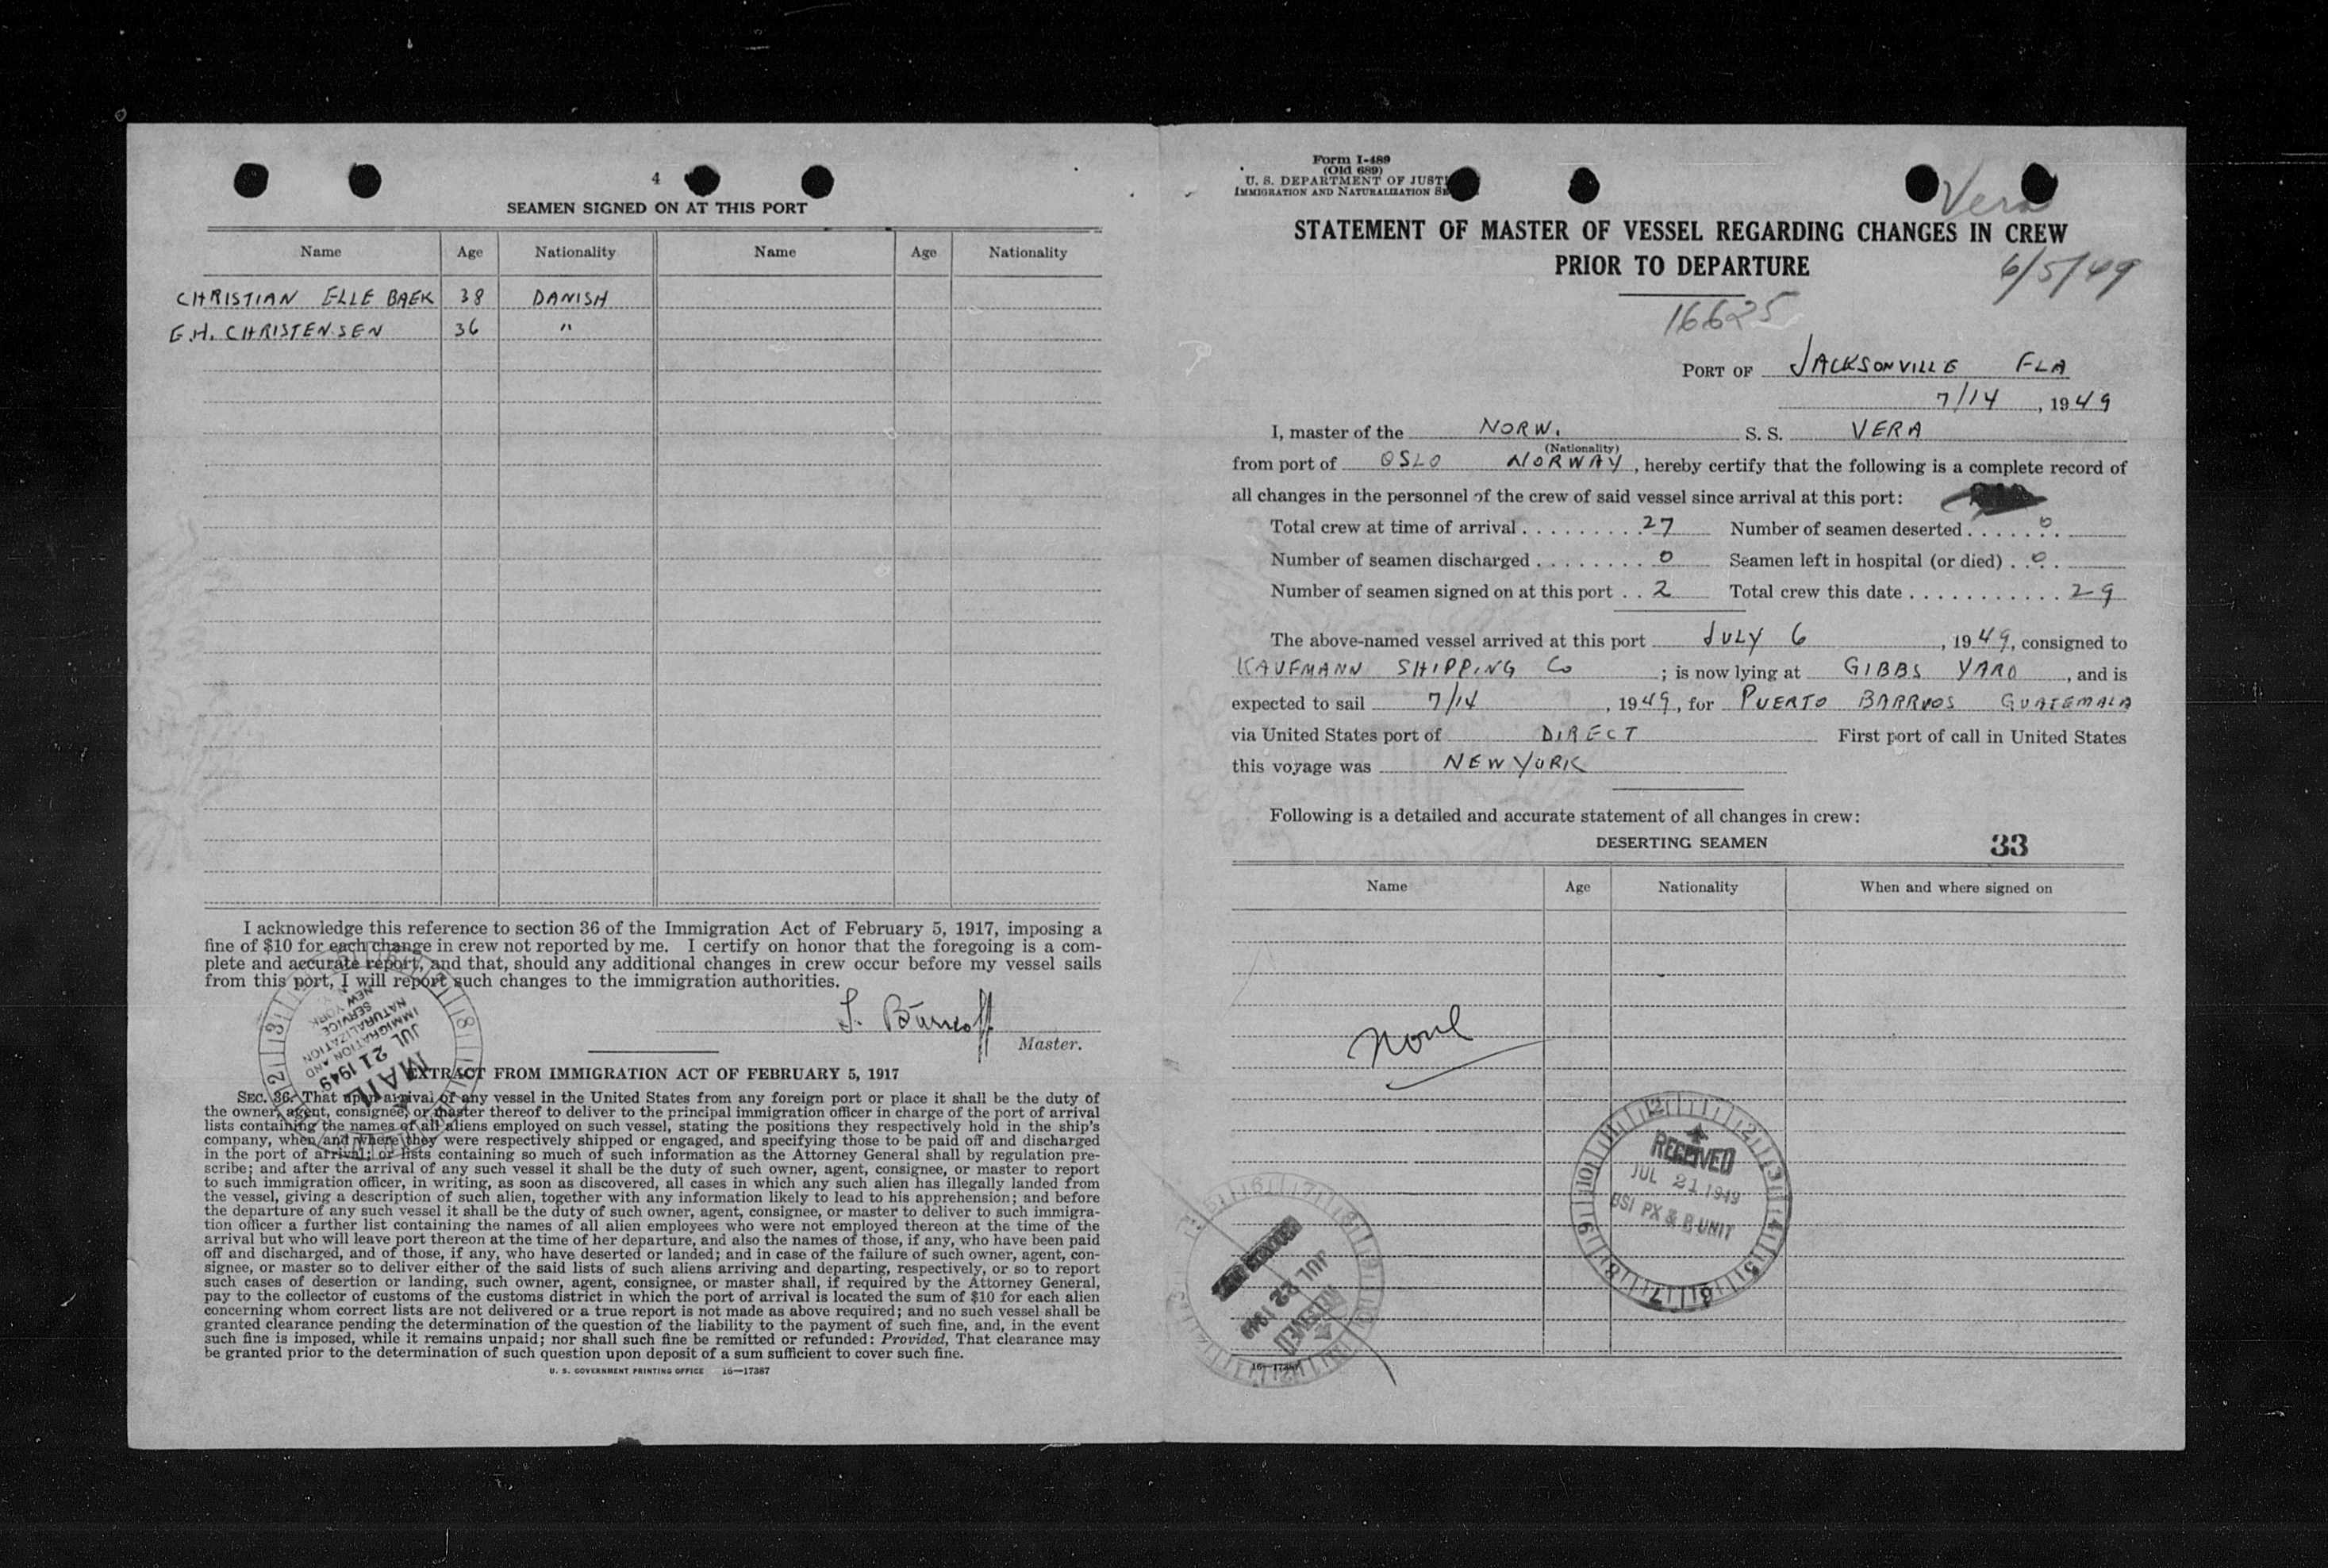 4
SEAMEN SIGNED ON AT THIS PORT
Name Age Nationality Name Age Nationality
CHRISTIAN ELLE BAEK 38 DANISH
E.H. CHRISTENSEN 36 "
I acknowledge this reference to section 36 of the Immigration Act of February 5, 1917, imposing a
fine of $10 for each change in crew not reported by me. I certify on honor that the foregoing is a com-
plete and accurate report, and that, should any additional changes in crew occur before my vessel sails
from this port, I will report such changes to the immigration authorities.
Master.
IMMIGRATION AND
NATURALIZATION
SERVICE
NEW YORK
JUL 21 1949
MAIL
EXTRACT FROM IMMIGRATION ACT OF FEBRUARY 5, 1917
SEC. 36. That upon arrival of any vessel in the United States from any foreign port or place it shall be the duty of
the owner, agent, consignee, or master thereof to deliver to the principal immigration officer in charge of the port of arrival
lists containing the names of all aliens employed on such vessel, stating the positions they respectively hold in the ship's
company, when and where they were respectively shipped or engaged, and specifying those to be paid off and discharged
in the port of arrival; or lists containing so much of such information as the Attorney General shall by regulation pre-
scribe; and after the arrival of any such vessel it shall be the duty of such owner, agent, consignee, or master to report
to such immigration officer, in writing, as soon as discovered, all cases in which any such alien has illegally landed from
the vessel, giving a description of such alien, together with any information likely to lead to his apprehension; and before
the departure of any such vessel it shall be the duty of such owner, agent, consignee, or master to deliver to such immigra-
tion officer a further list containing the names of all alien employees who were not employed thereon at the time of the
arrival but who will leave port thereon at the time of her departure, and also the names of those, if any, who have been paid
off and discharged, and of those, if any, who have deserted or landed; and in case of the failure of such owner, agent, con-
signee, or master so to deliver either of the said lists of such aliens arriving and departing, respectively, or so to report
such cases of desertion or landing, such owner, agent, consignee, or master shall, if required by the Attorney General,
pay to the collector of customs of the customs district in which the port of arrival is located the sum of $10 for each alien
concerning whom correct lists are not delivered or a true report is not made as above required; and no such vessel shall be
granted clearance pending the determination of the question of the liability to the payment of such fine, and, in the event
such fine is imposed, while it remains unpaid; nor shall such fine be remitted or refunded: Provided, That clearance may
be granted prior to the determination of such question upon deposit of a sum sufficient to cover such fine.
U. S. GOVERNMENT PRINTING OFFICE 16—17387
Form I-489
(Old 689)
U. S. DEPARTMENT OF JUSTI
IMMIGRATION AND NATURALIZATION SE
Vera
STATEMENT OF MASTER OF VESSEL REGARDING CHANGES IN CREW
PRIOR TO DEPARTURE
6/5/49
16625
PORT OF JACKSONVILLE FLA
7/14, 1949
I, master of the NORW. S. S. VERA
(Nationality)
from port of OSLO NORWAY, hereby certify that the following is a complete record of
all changes in the personnel of the crew of said vessel since arrival at this port:
Total crew at time of arrival . . . . . . . . . 27 Number of seamen deserted . . . . . . . 0
Number of seamen discharged . . . . . . . . 0 Seamen left in hospital (or died) . . . . 0
Number of seamen signed on at this port . . 2 Total crew this date . . . . . . . . . . . . 29
The above-named vessel arrived at this port JULY 6, 1949, consigned to
KAUFMANN SHIPPING Co; is now lying at GIBBS YARD, and is
expected to sail 7/14, 1949, for PUERTO BARRIOS GUATEMALA
via United States port of DIRECT First port of call in United States
this voyage was NEW YORK
Following is a detailed and accurate statement of all changes in crew:
DESERTING SEAMEN 33
Name Age Nationality When and where signed on
None
RECEIVED
JUL 21 1949
BSI PX & B UNIT
RECEIVED
JUL 22 1949
16—17387